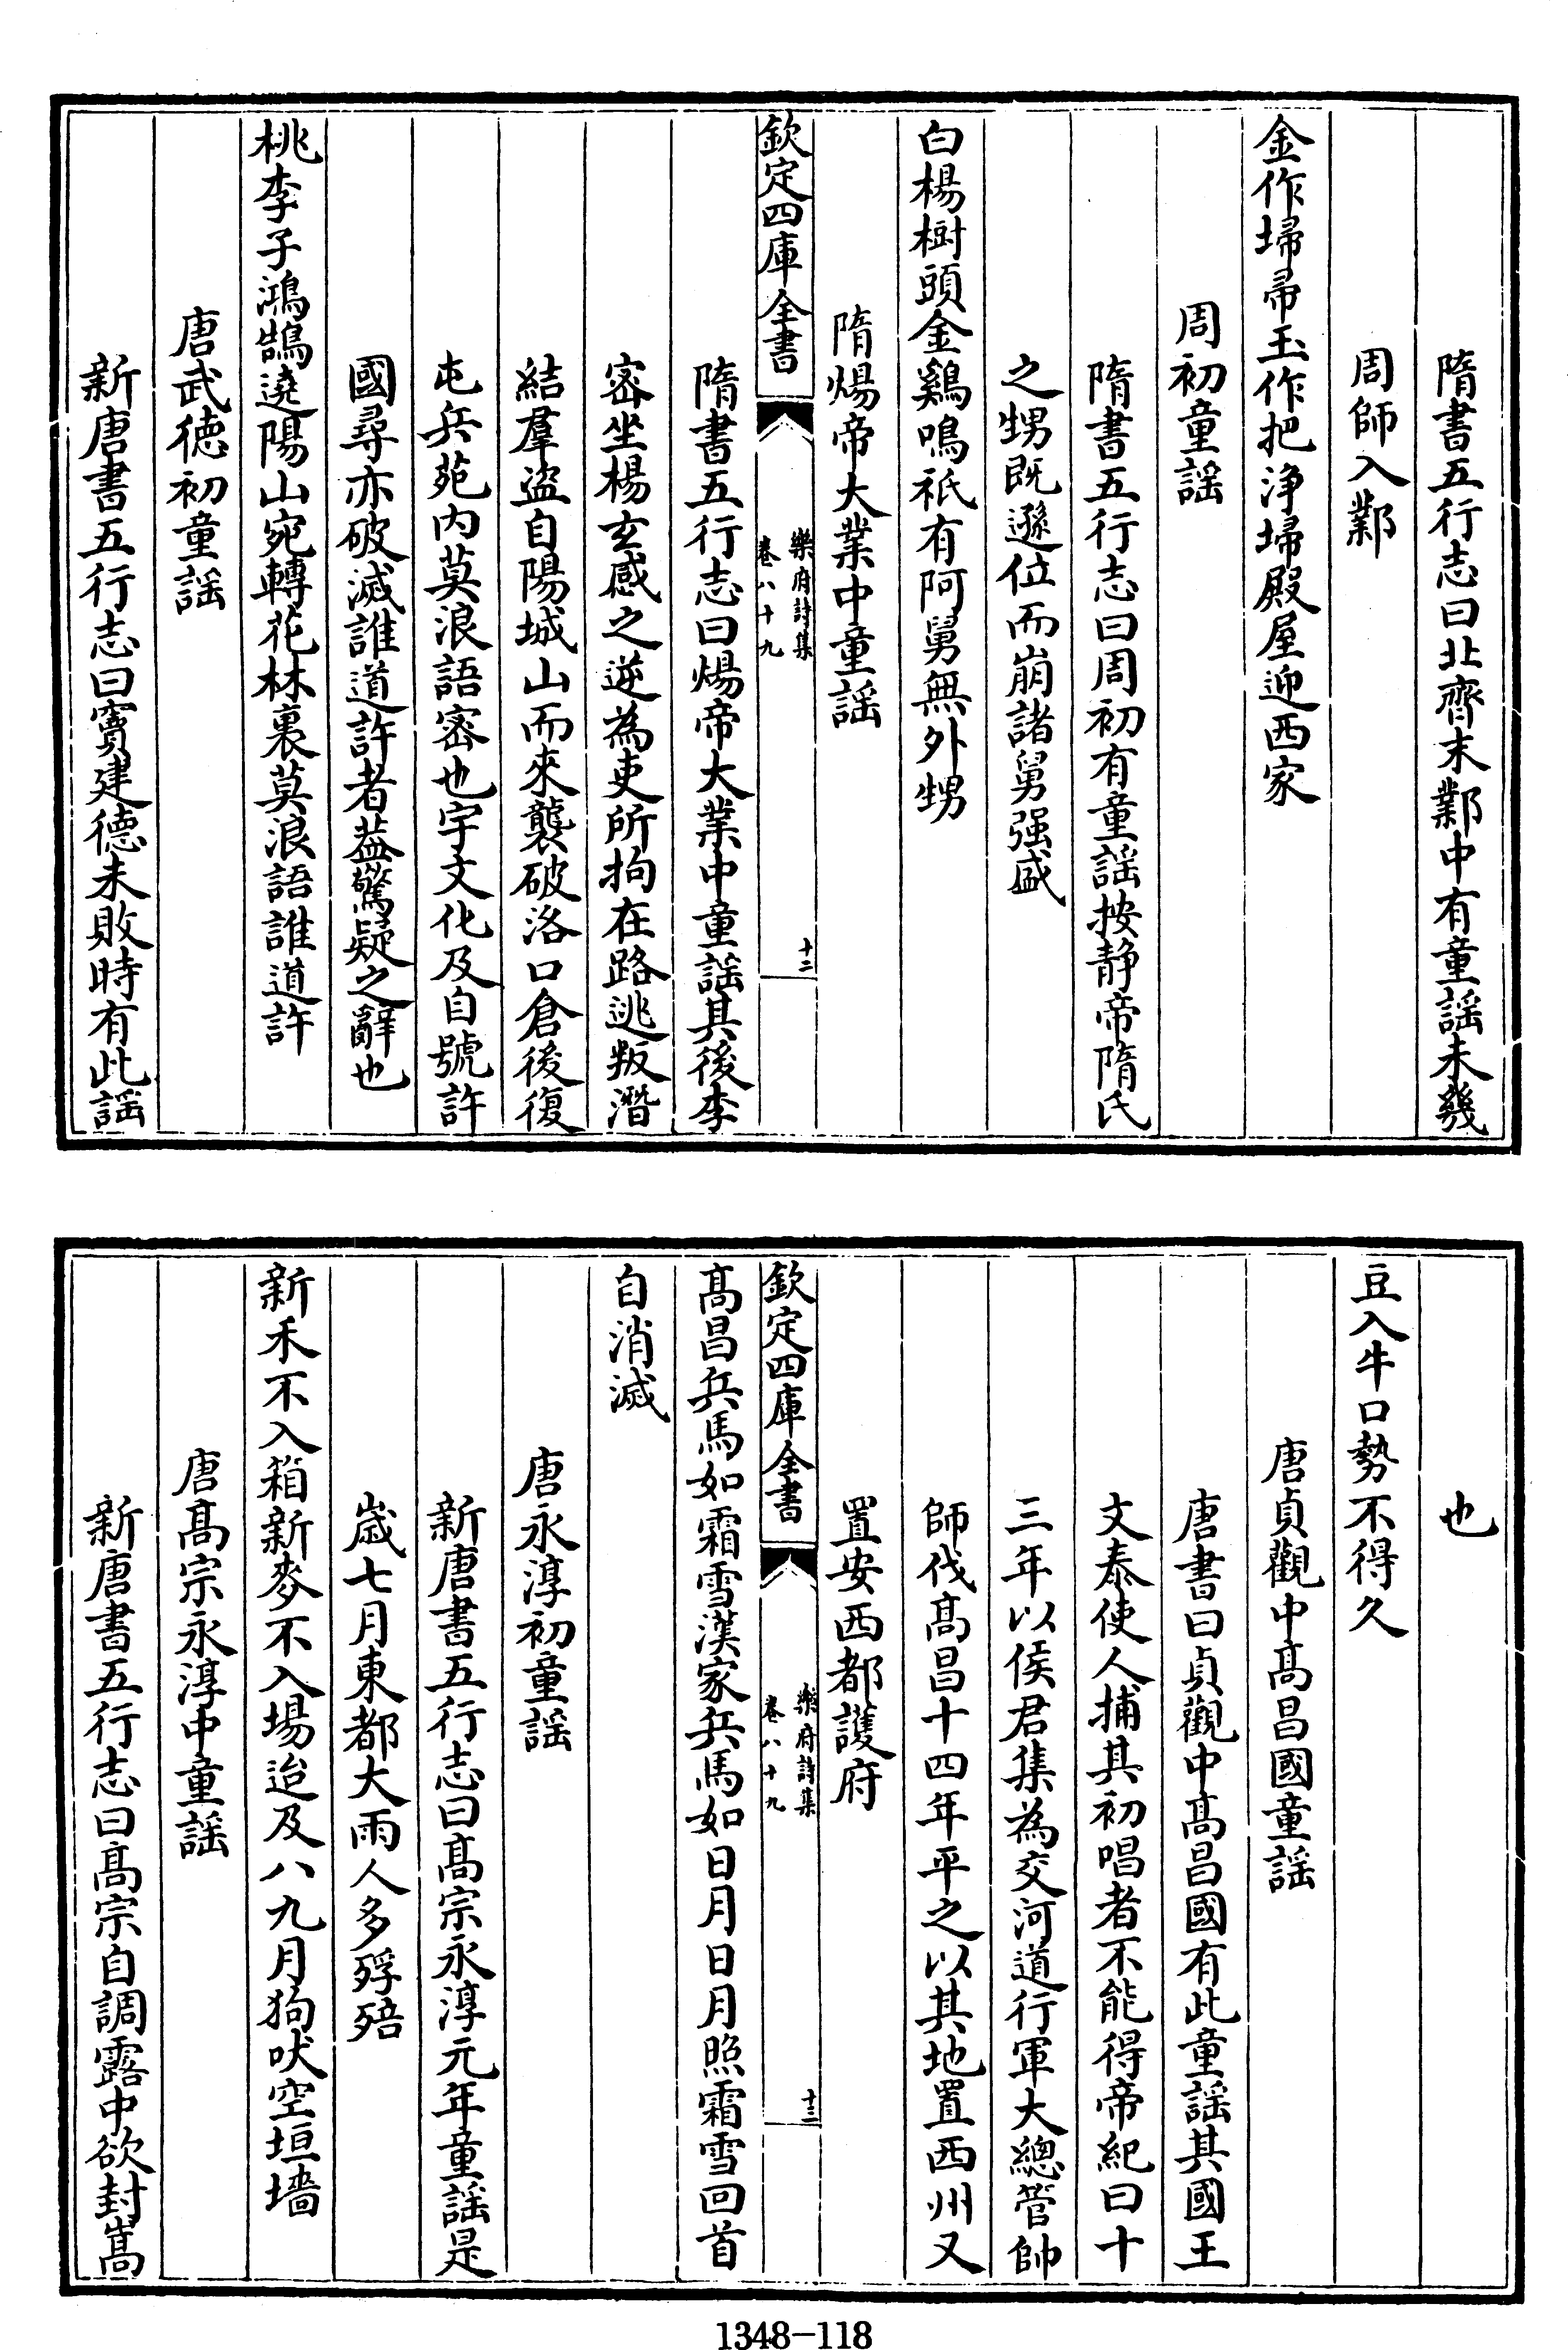 隋書五行志曰北齊末鄴中有童謡未幾
周師入鄴
金作埽帚玉作把浄埽殿屋迎西家
周初童謡
隋書五行志曰周初有童謡按静帝隋氏
之甥既遜位而崩諸舅强盛
白楊樹頭金鷄鳴祇有阿舅無外甥
隋煬帝大業中童謡
欽定四庫全書
樂府詩集
卷八十九
十二
隋書五行志曰煬帝大業中童謡其後李
密坐楊玄感之逆為吏所拘在路逃叛潛
結羣盜自陽城山而來襲破洛口倉後復
屯兵苑内莫浪語密也宇文化及自號許
國尋亦破滅誰道許者葢驚疑之辭也
桃李子鴻鵠遶陽山宛轉花林裏莫浪語誰道許
唐武徳初童謡
新唐書五行志曰竇建德未敗時有此謡
也
豆入牛口勢不得久
唐貞觀中髙昌國童謡
唐書曰貞觀中髙昌國有此童謡其國王
文泰使人捕其初唱者不能得帝紀曰十
三年以侯君集為交河道行軍大總管帥
師伐髙昌十四年平之以其地置西州又
置安西都護府
欽定四庫全書
樂府詩集
卷八十九
十三
髙昌兵馬如霜雪漢家兵馬如日月日月照霜雪回首
自消滅
唐永淳初童謡
新唐書五行志曰髙宗永淳元年童謡是
歳七月東都大雨人多殍殕
新禾不入箱新麥不入場迨及八九月狗吠空垣墻
唐髙宗永淳中童謡
新唐書五行志曰髙宗自調露中欲封嵩
1348-118